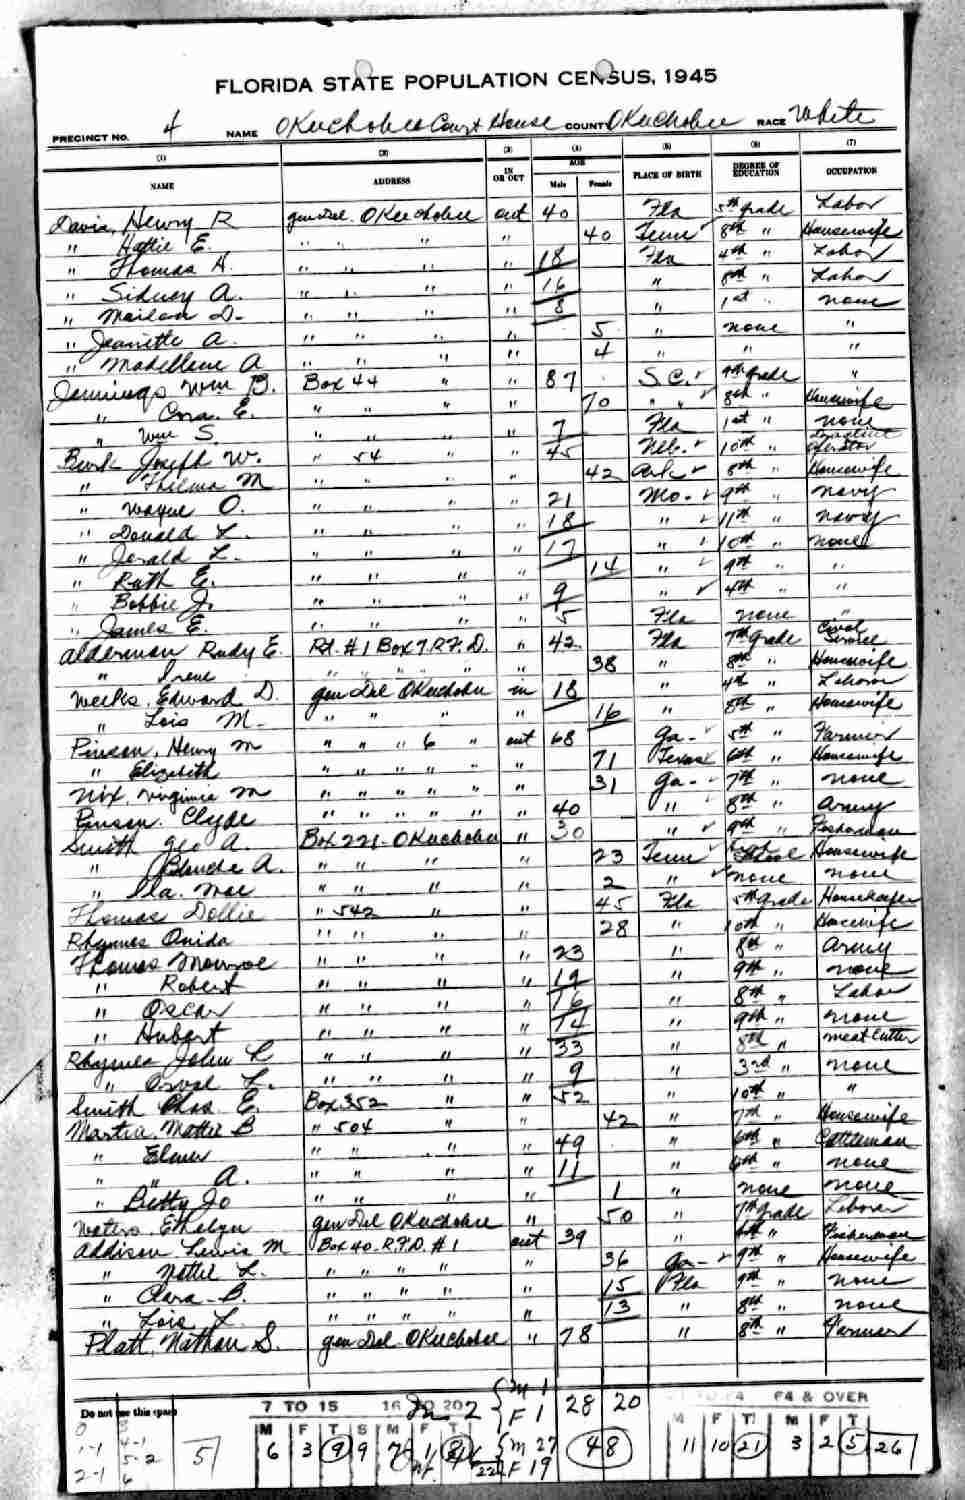 FLORIDA STATE POPULATION CENSUS, 1945
PRECINCT NO. 4 NAME Okeechobee Court House COUNTY Okeechobee RACE White
(1) (2) (3) (4) (5) (6) (7)
NAME ADDRESS IN OR OUT AGE Male Female PLACE OF BIRTH DEGREE OF EDUCATION OCCUPATION
Davis, Henry R gen Del. Okeechobee out 40 Fla 5th grade Labor
" Hattie E. " " " " 40 Tenn 8th " Housewife
" Thomas H. " " " " 18 Fla 4th " Labor
" Sidney A. " " " " 16 " 8th " Labor
" D. " " " " 8 " 1st " none
" Jeanette A. " " " " 5 " none "
" Madellene A " " " " 4 " " "
Jennings Wm B. Box 44 " " 87 S.C. 7th grade "
" Cora. E. " " " " 70 " " 8th " Housewife
" Wm S. " " " " 7 Fla 1st " none
Burk Joseph W. " 54 " " 45 Neb. 10th " operator
" Thelma M " " " " 42 Ark 8th " Housewife
" Wayne O. " " " " 21 Mo. 9th " navy
" Donald L. " " " " 18 " 11th " navy
" Jerald L. " " " " 17 " 10th " none
" Ruth E. " " " " 14 " 9th " "
" Bobbie J. " " " " 9 " 4th " "
" James E. " " " " 5 Fla none "
Alderman Rudy E. Rt. #1 Box 7 R.F.D. " 42 Fla 7th grade Civil Service
" Irene " " " " " 38 " 8th " Housewife
Weeks, Edward D. gen Del Okeechobee in 18 " 4th " Laborer
" Lois M. " " " " 16 " 8th " Housewife
Pinson, Henry M " " " 6 " out 68 Ga 5th " Farmer
" Elizabeth " " " " " " 71 Texas 6th " Housewife
Nix, Virginia M " " " " " " 31 Ga 7th " none
Pinson. Clyde " " " " " " 40 " 8th " Army
Smith Geo A. Box 221 Okeechobee " 30 " 9th " Fisherman
" Blanche A. " " " " 23 Tenn Housewife
" Ila. Mae " " " " 2 " none none
Thomas Dollie " 542 " " 45 Fla 5th grade Housekeeper
Rhymes Onida " " " " 28 " 10th " Housewife
Thomas Monroe " " " " 23 " 8th " Army
" Robert " " " " 19 " 9th " none
" Oscar " " " " 16 " 8th " Labor
" Hubert " " " " 14 " 9th " none
Rhymes John L " " " " 33 " 8th " meat cutter
" L. " " " " 9 " 3rd " none
Smith Chas E. Box 352 " " 52 " 10th " "
Martin, Mattie B " 504 " " 42 " 7th " Housewife
" Elmer " " " " 49 " 6th " Cattleman
" " A. " " " " 11 " 6th " none
" Betty Jo " " " " 1 " none none
Waters, Ethelyn gen Del Okeechobee " 50 " 7th grade Laborer
Addison Lewis M Box 40 R.F.D. #1 out 39 " 6th " Fisherman
" Nettie L. " " " " " 36 Ga 9th " Housewife
" Clara B. " " " " " 15 Fla 9th " none
" Lois L. " " " " " 13 " 8th " none
Platt, Nathan S. gen Del Okeechobee " 78 " 8th " Farmer
Do not use this space 7 TO 15 16 TO 20 In 2 M 1 F 1 28 20 64 & OVER
M F T S M F T M F T M F T
1-1 4-1 5 6 3 9 9 7 1 8 M 27 48 11 10 21 3 2 5 26
5-2
2-1 6 22 F 19